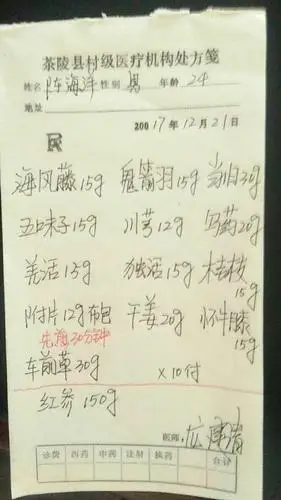 茶陵县村级医疗机构处方笺
姓名 陈海洋 性别 男 年龄 24
地址
20017年12月21日
海风藤15g 鬼箭羽15g 当归30g
五味子15g 川芎12g 乌药20g
羌活15g 独活15g 桂枝15g
附片12g布包 干姜20g 怀牛膝15g
先煎30分钟
车前草30g ×10付
红参150g
医师:
诊费 西药 中药 注射 换药 合计